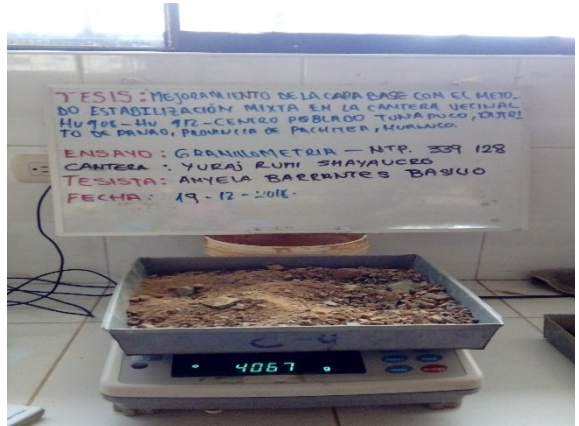 TESIS: MEJORAMIENTO DE LA CAPA BASE CON EL METO-
DO ESTABILIZACIÓN MIXTA EN LA CANTERA VECINAL
HU 902-HU 912-CENTRO POBLADO TUNAPUCO, DISTRI
TO DE PANAO, PROVINCIA DE PACHITEA, HUANUCO
ENSAYO: GRANULOMETRIA - NTP. 339 128
CANTERA: YURAJ RUMI SHAYAUCRO
TESISTA: ANYELA BARRANTES BASILIO
FECHA: 19-12-2018-
C-4
4067 g